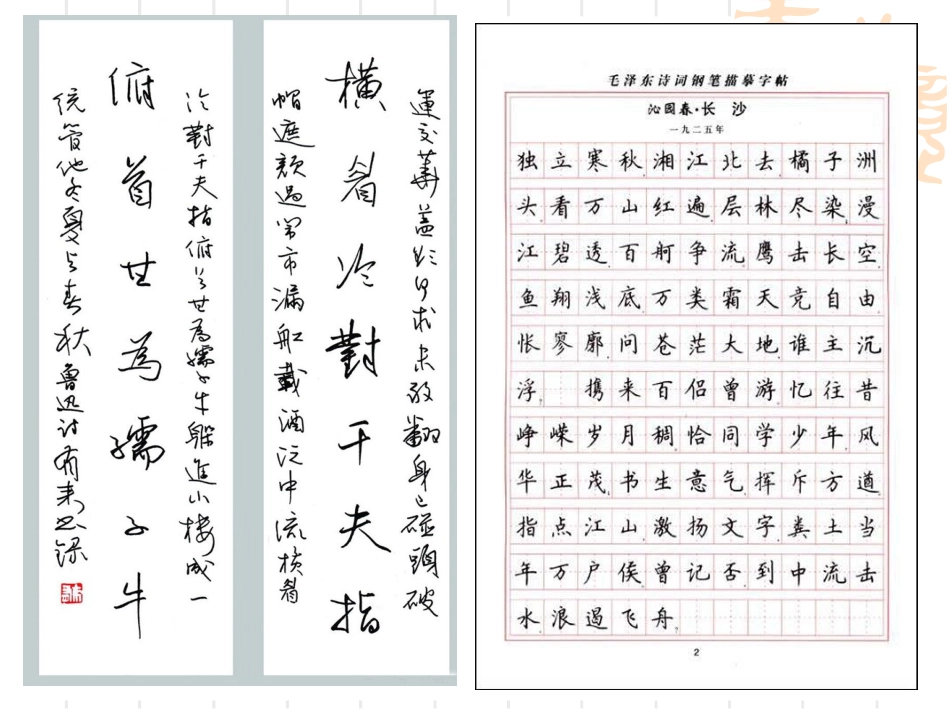 運交華蓋欲何求未敢翻身已碰頭破
横眉冷對千夫指
帽遮顏過鬧市漏船載酒泛中流横眉
冷對千夫指俯首甘為孺子牛躲進小楼成一
俯首甘為孺子牛
統管他冬夏与春秋 魯迅诗
毛泽东诗词钢笔描摹字帖
沁园春·长 沙
一九二五年
独立寒秋,湘江北去,橘子洲
头。看万山红遍,层林尽染;漫
江碧透,百舸争流。鹰击长空,
鱼翔浅底,万类霜天竞自由。
怅寥廓,问苍茫大地,谁主沉
浮? 携来百侣曾游,忆往昔
峥嵘岁月稠。恰同学少年,风
华正茂;书生意气,挥斥方遒。
指点江山,激扬文字,粪土当
年万户侯。曾记否,到中流击
水,浪遏飞舟。
2